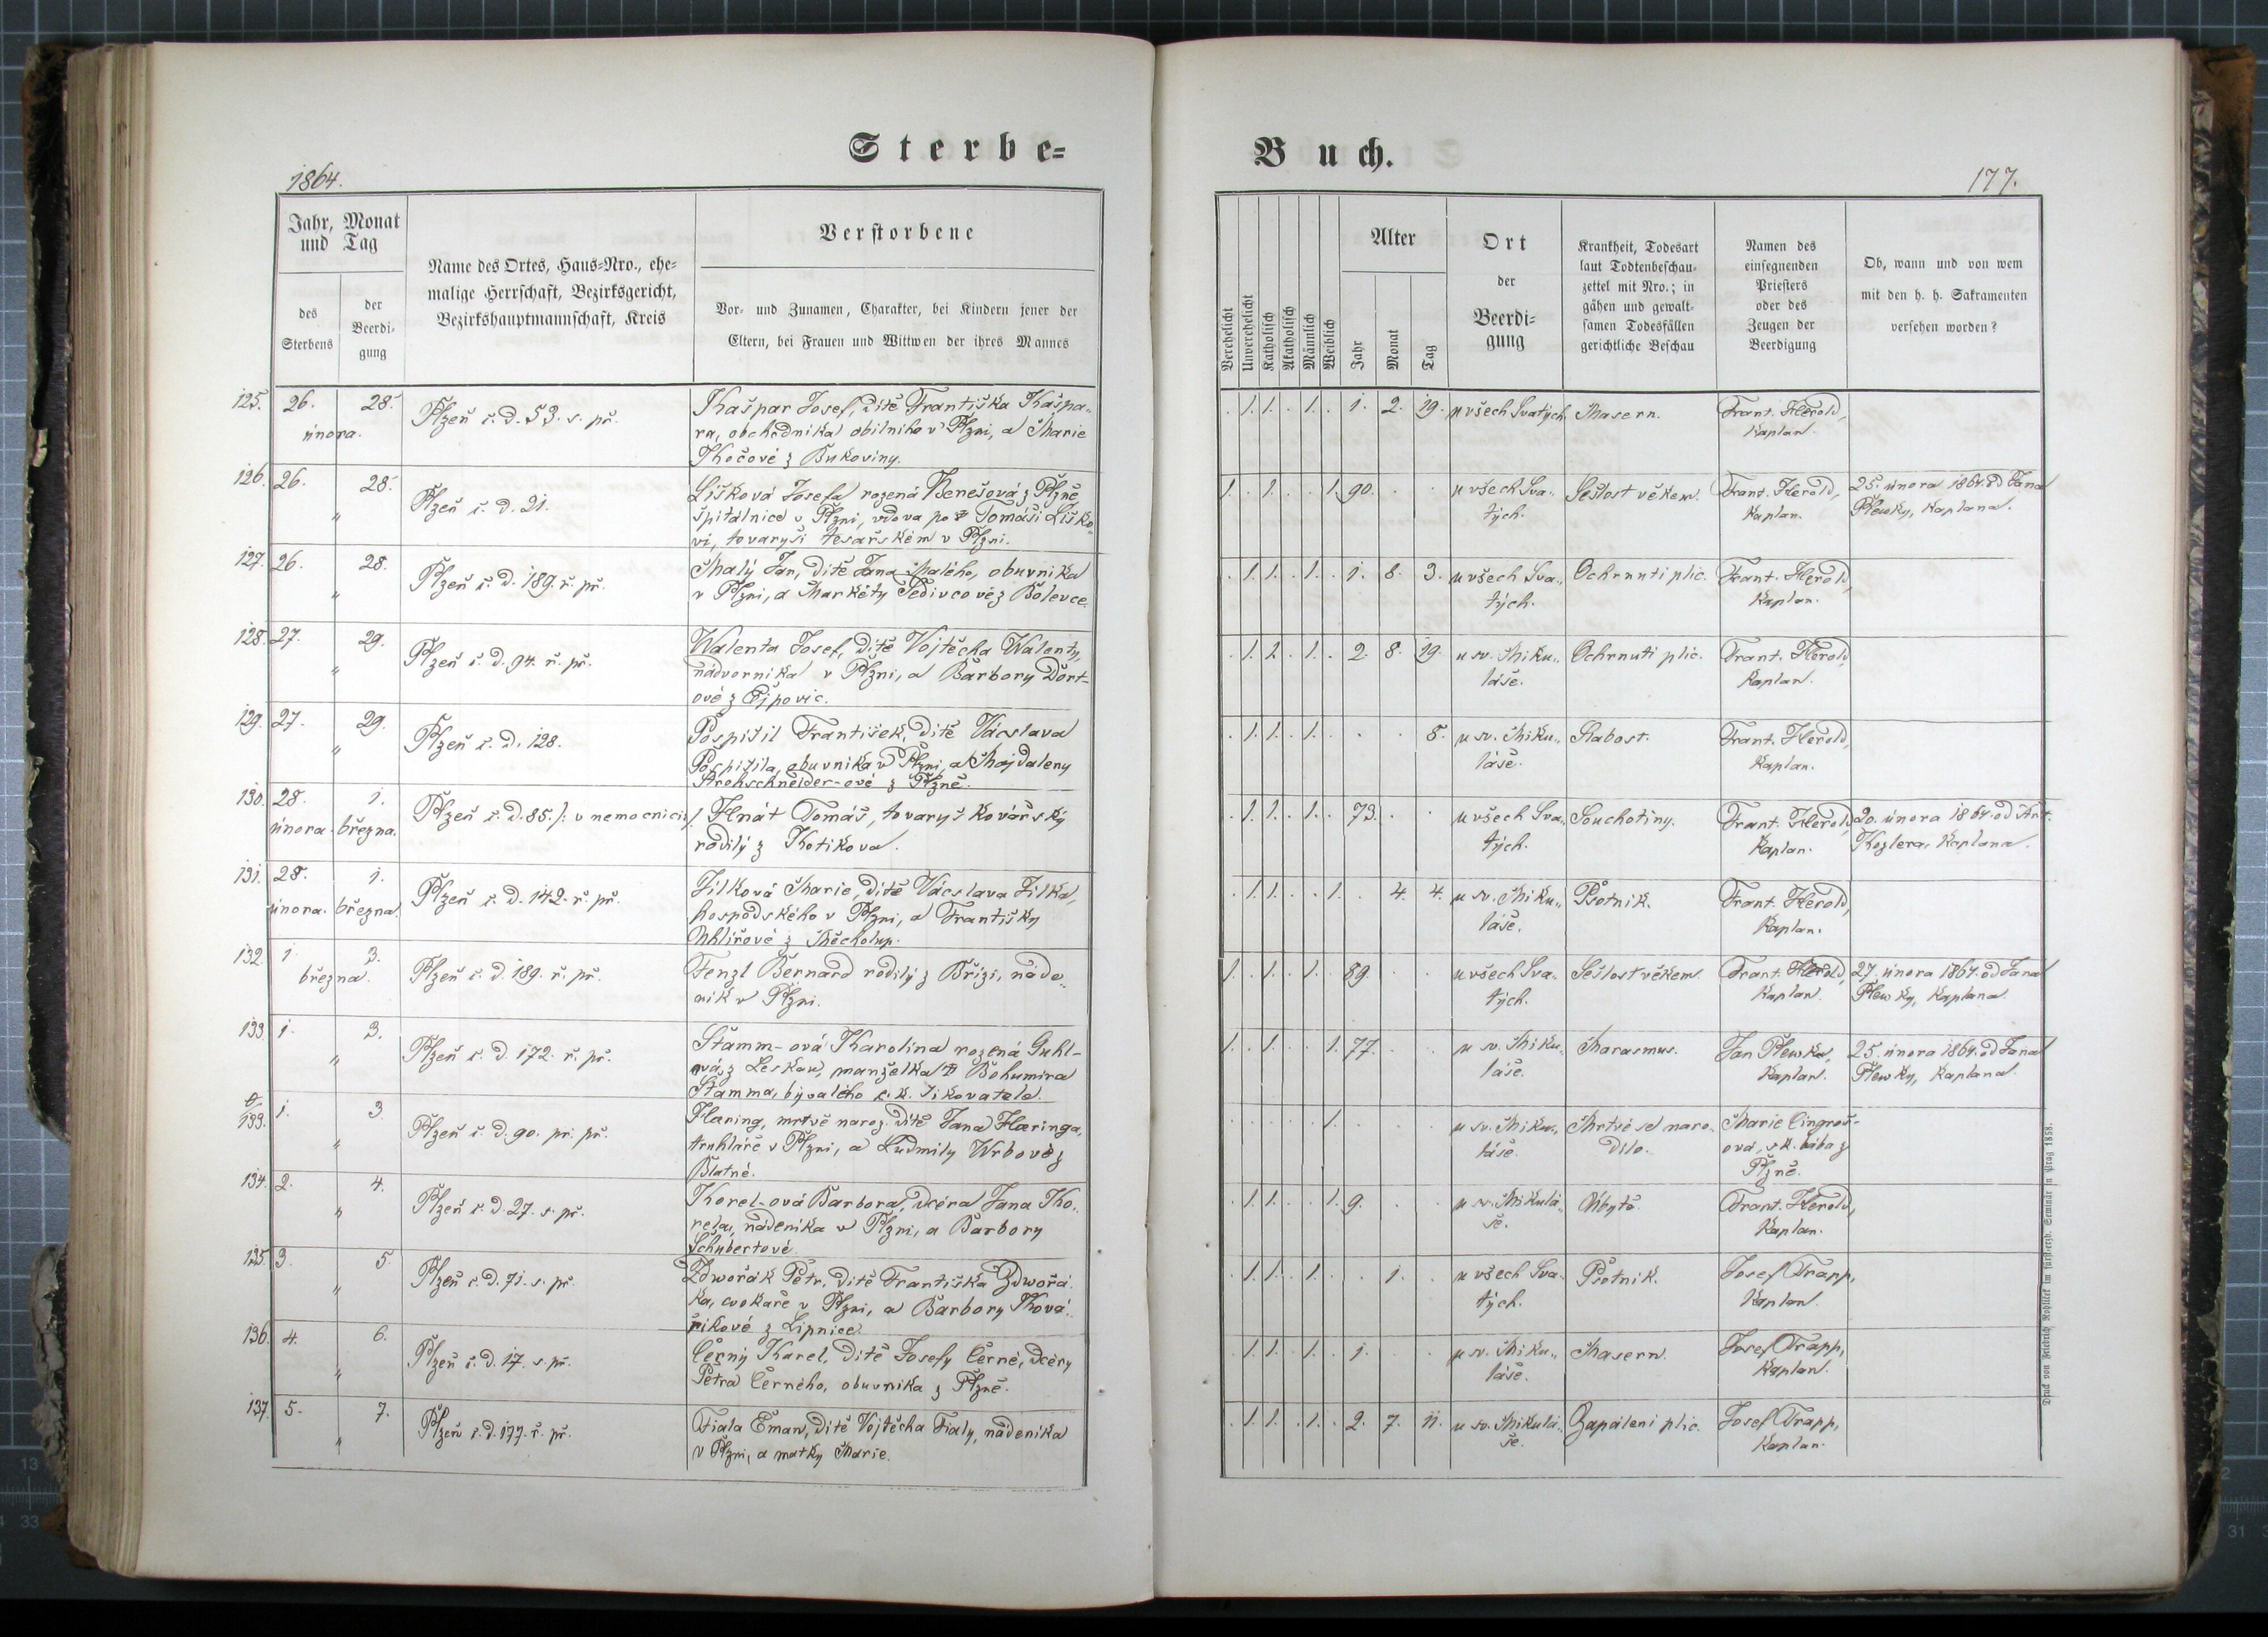 Sterbe=
1864.
Jahr, Monat
und Tag
des
Sterbens
der
Beerdi-
gung
Name des Ortes, Haus=Nro., ehe-
malige Herrschaft, Bezirksgericht,
Bezirkshauptmannschaft, Kreis
Verstorbene
Vor- und Zunamen, Charakter, bei Kindern jener der
Eltern, bei Frauen und Wittwen der ihres Mannes
125. 26. 28. února. Plzeň č. d. 53. s. př.
Kašpar Josef, dítě Františka Kašpa-
ra, obchodníka obilního v Plzni, a Marie
Kočové z Bukoviny.
126. 26. 28. " Plzeň č. d. 21.
Lišková Josefa rozená Benešová z Plzně,
špitálnice v Plzni, vdova po † Tomáši Liško-
vi, tovaryši tesařském v Plzni.
127. 26. 28. " Plzeň č. d. 189. ř. př.
Malý Jan, dítě Jana Malého, obuvníka
v Plzni, a Markéty Šedivcové z Bolevce.
128. 27. 29. " Plzeň č. d. 94. ř. př.
Walenta Josef, dítě Vojtěcha Walenty,
nádvorníka v Plzni, a Barbory Dort-
ové z Ejpovic.
129. 27. 29. " Plzeň č. d. 128.
Pospíšil František, dítě Václava
Pospíšila, obuvníka v Plzni, a Majdaleny
Strohschneider-ové z Plzně.
130. 28. února. 1. března. Plzeň č. d. 85. /: v nemocnici:/
Hnát Tomáš, tovaryš kovářský
rodilý z Kotikova.
131. 28. února. 1. března. Plzeň č. d. 142. ř. př.
Jílková Marie, dítě Václava Jílka,
hospodského v Plzni, a Františky
Uhlířové z Měcholup.
132. 1. 3. března. Plzeň č. d. 189. ř. př.
Fenzl Bernard rodilý z Břízi, náde-
ník v Plzni.
133. 1. 3. " Plzeň č. d. 172. ř. př.
Stamm-ová Karolina rozená Guhl-
ová, z Leskau, manželka † Bohumíra
Stamma, bývalého c. k. šikovatele.
133. 1. 3. " Plzeň č. d. 90. pr. př.
Haring, mrtvě naroz. dítě Jana Haringa,
truhláře v Plzni, a Ludmily Wrbové z
Blatné.
134. 2. 4. " Plzeň č. d. 27. s. př.
Korel-ová Barbora, dcéra Jana Ko-
rela, nádeníka v Plzni, a Barbory
Schubertové.
135. 3. 5. " Plzeň č. d. 71. s. př.
Zdwořák Petr, dítě Františka Zdwořá-
ka, cvokaře v Plzni, a Barbory Ková-
říkové z Lipnice.
136. 4. 6. " Plzeň č. d. 17. s. př.
Černý Karel, dítě Josefy Černé, dcéry
Petra Černého, obuvníka z Plzně.
137. 5. 7. " Plzeň č. d. 177. ř. př.
Fiala Eman, dítě Vojtěcha Fialy, nádeníka
v Plzni, a matky Marie.
Buch.
177.
Verehelicht
Unverehelicht
Katholisch
Akatholisch
Männlich
Weiblich
Alter
Jahr
Monat
Tag
Ort
der
Beerdi-
gung
Krankheit, Todesart
laut Todtenbeschau-
zettel mit Nro.; in
gähen und gewalt-
samen Todesfällen
gerichtliche Beschau
Namen des
einsegnenden
Priesters
oder des
Zeugen der
Beerdigung
Ob, wann und von wem
mit den h. h. Sakramenten
versehen worden?
. 1. 1. . 1. . 1. 2. 19. u všech Svatých Masern. Frant. Herold,
Kaplan.
1. . 1. . . 1. 90. . . u všech Sva- Sešlost věkem. Frant. Herold, 25. února 1864. od Jana
tých. Kaplan. Plewky, Kaplana.
. 1. 1. . 1. . 1. 8. 3. u všech Sva- Ochrnutí plic. Frant. Herold,
tých. Kaplan.
. 1. 1. . 1. . 2. 8. 19. u sv. Miku- Ochrnutí plic. Frant. Herold,
láše. Kaplan.
. 1. 1. . 1. . . . 8. u sv. Miku- Slabost. Frant. Herold,
láše. Kaplan.
. 1. 1. . 1. . 73. . . u všech Sva- Souchotiny. Frant. Herold, 20. února 1864. od Ant.
tých. Kaplan. Kozlera, Kaplana.
. 1. 1. . . 1. . 4. 4. u sv. Miku- Psotník. Frant. Herold,
láše. Kaplan.
1. . 1. . 1. . 89. . . u všech Sva- Sešlost věkem. Frant. Herold, 27. února 1864. od Jana
tých. Kaplan. Plewky, Kaplana.
1. . 1. . . 1. 77. . . u sv. Miku- Marasmus. Jan Plewka, 25. února 1864. od Jana
láše. Kaplan. Plewky, Kaplana.
. . . . . 1. . . . u sv. Miku- Mrtvé se naro- Marie Cingroš-
láše. dilo. ová, sk. bába z
Plzně.
. 1. 1. . . 1. 9. . . u sv. Mikulá- Úbytě. Frant. Herold,
še. Kaplan.
. 1. 1. . 1. . . 1. . u všech Sva- Psotník. Josef Trapp,
tých. Kaplan.
. 1. 1. . 1. . 1. . . u sv. Miku- Masern. Josef Trapp,
láše. Kaplan.
. 1. 1. . 1. . 2. 7. 11. u sv. Mikulá- Zapálení plic. Josef Trapp,
še. Kaplan.
Druck von Friedrich Rohliček im fürsterzb. Seminär in Prag 1858.